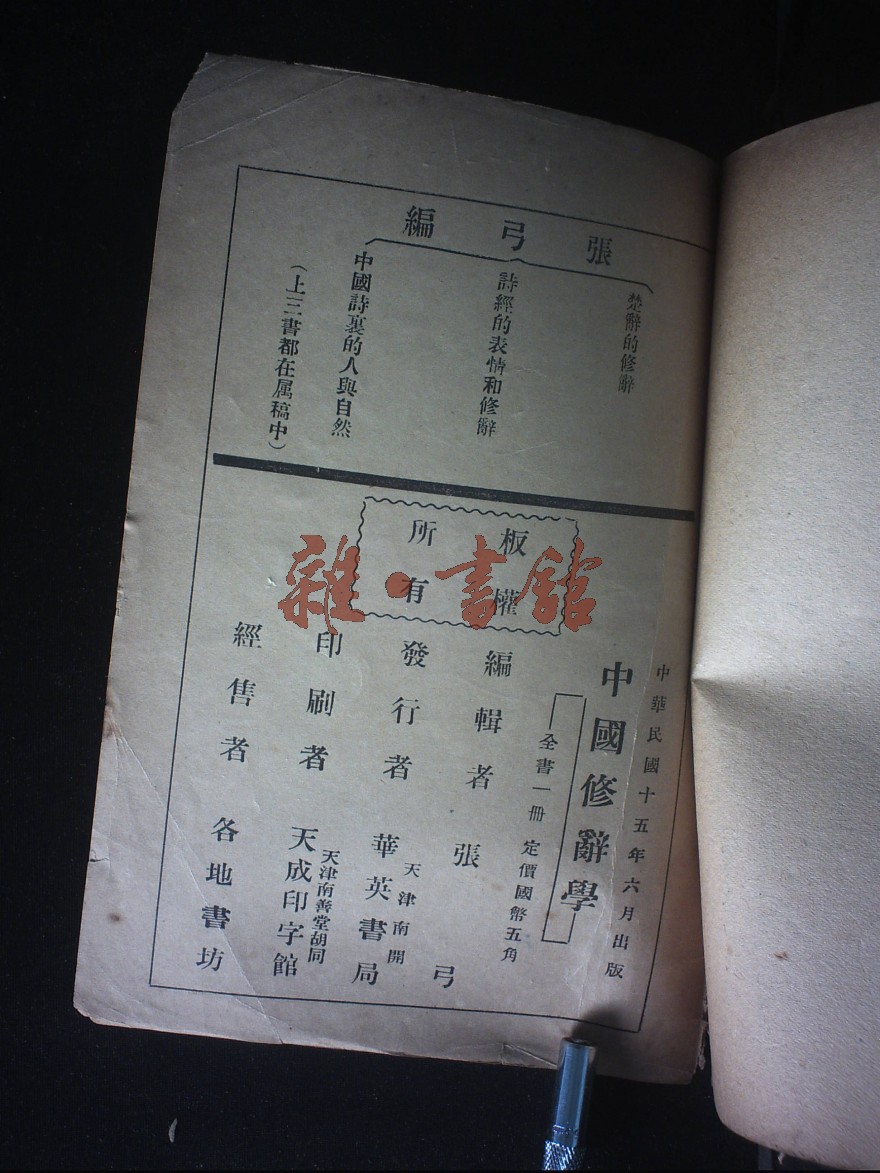 張弓編
楚辭的修辭
詩經的表情和修辭
中國詩裏的人與自然
(上三書都在属稿中)
板權
所有
雜·書館
中華民國十五年六月出版
中國修辭學
全書一冊 定價國幣五角
編輯者 張弓
發行者 天津南開 華英書局
印刷者 天津南善堂胡同 天成印字館
經售者 各地書坊